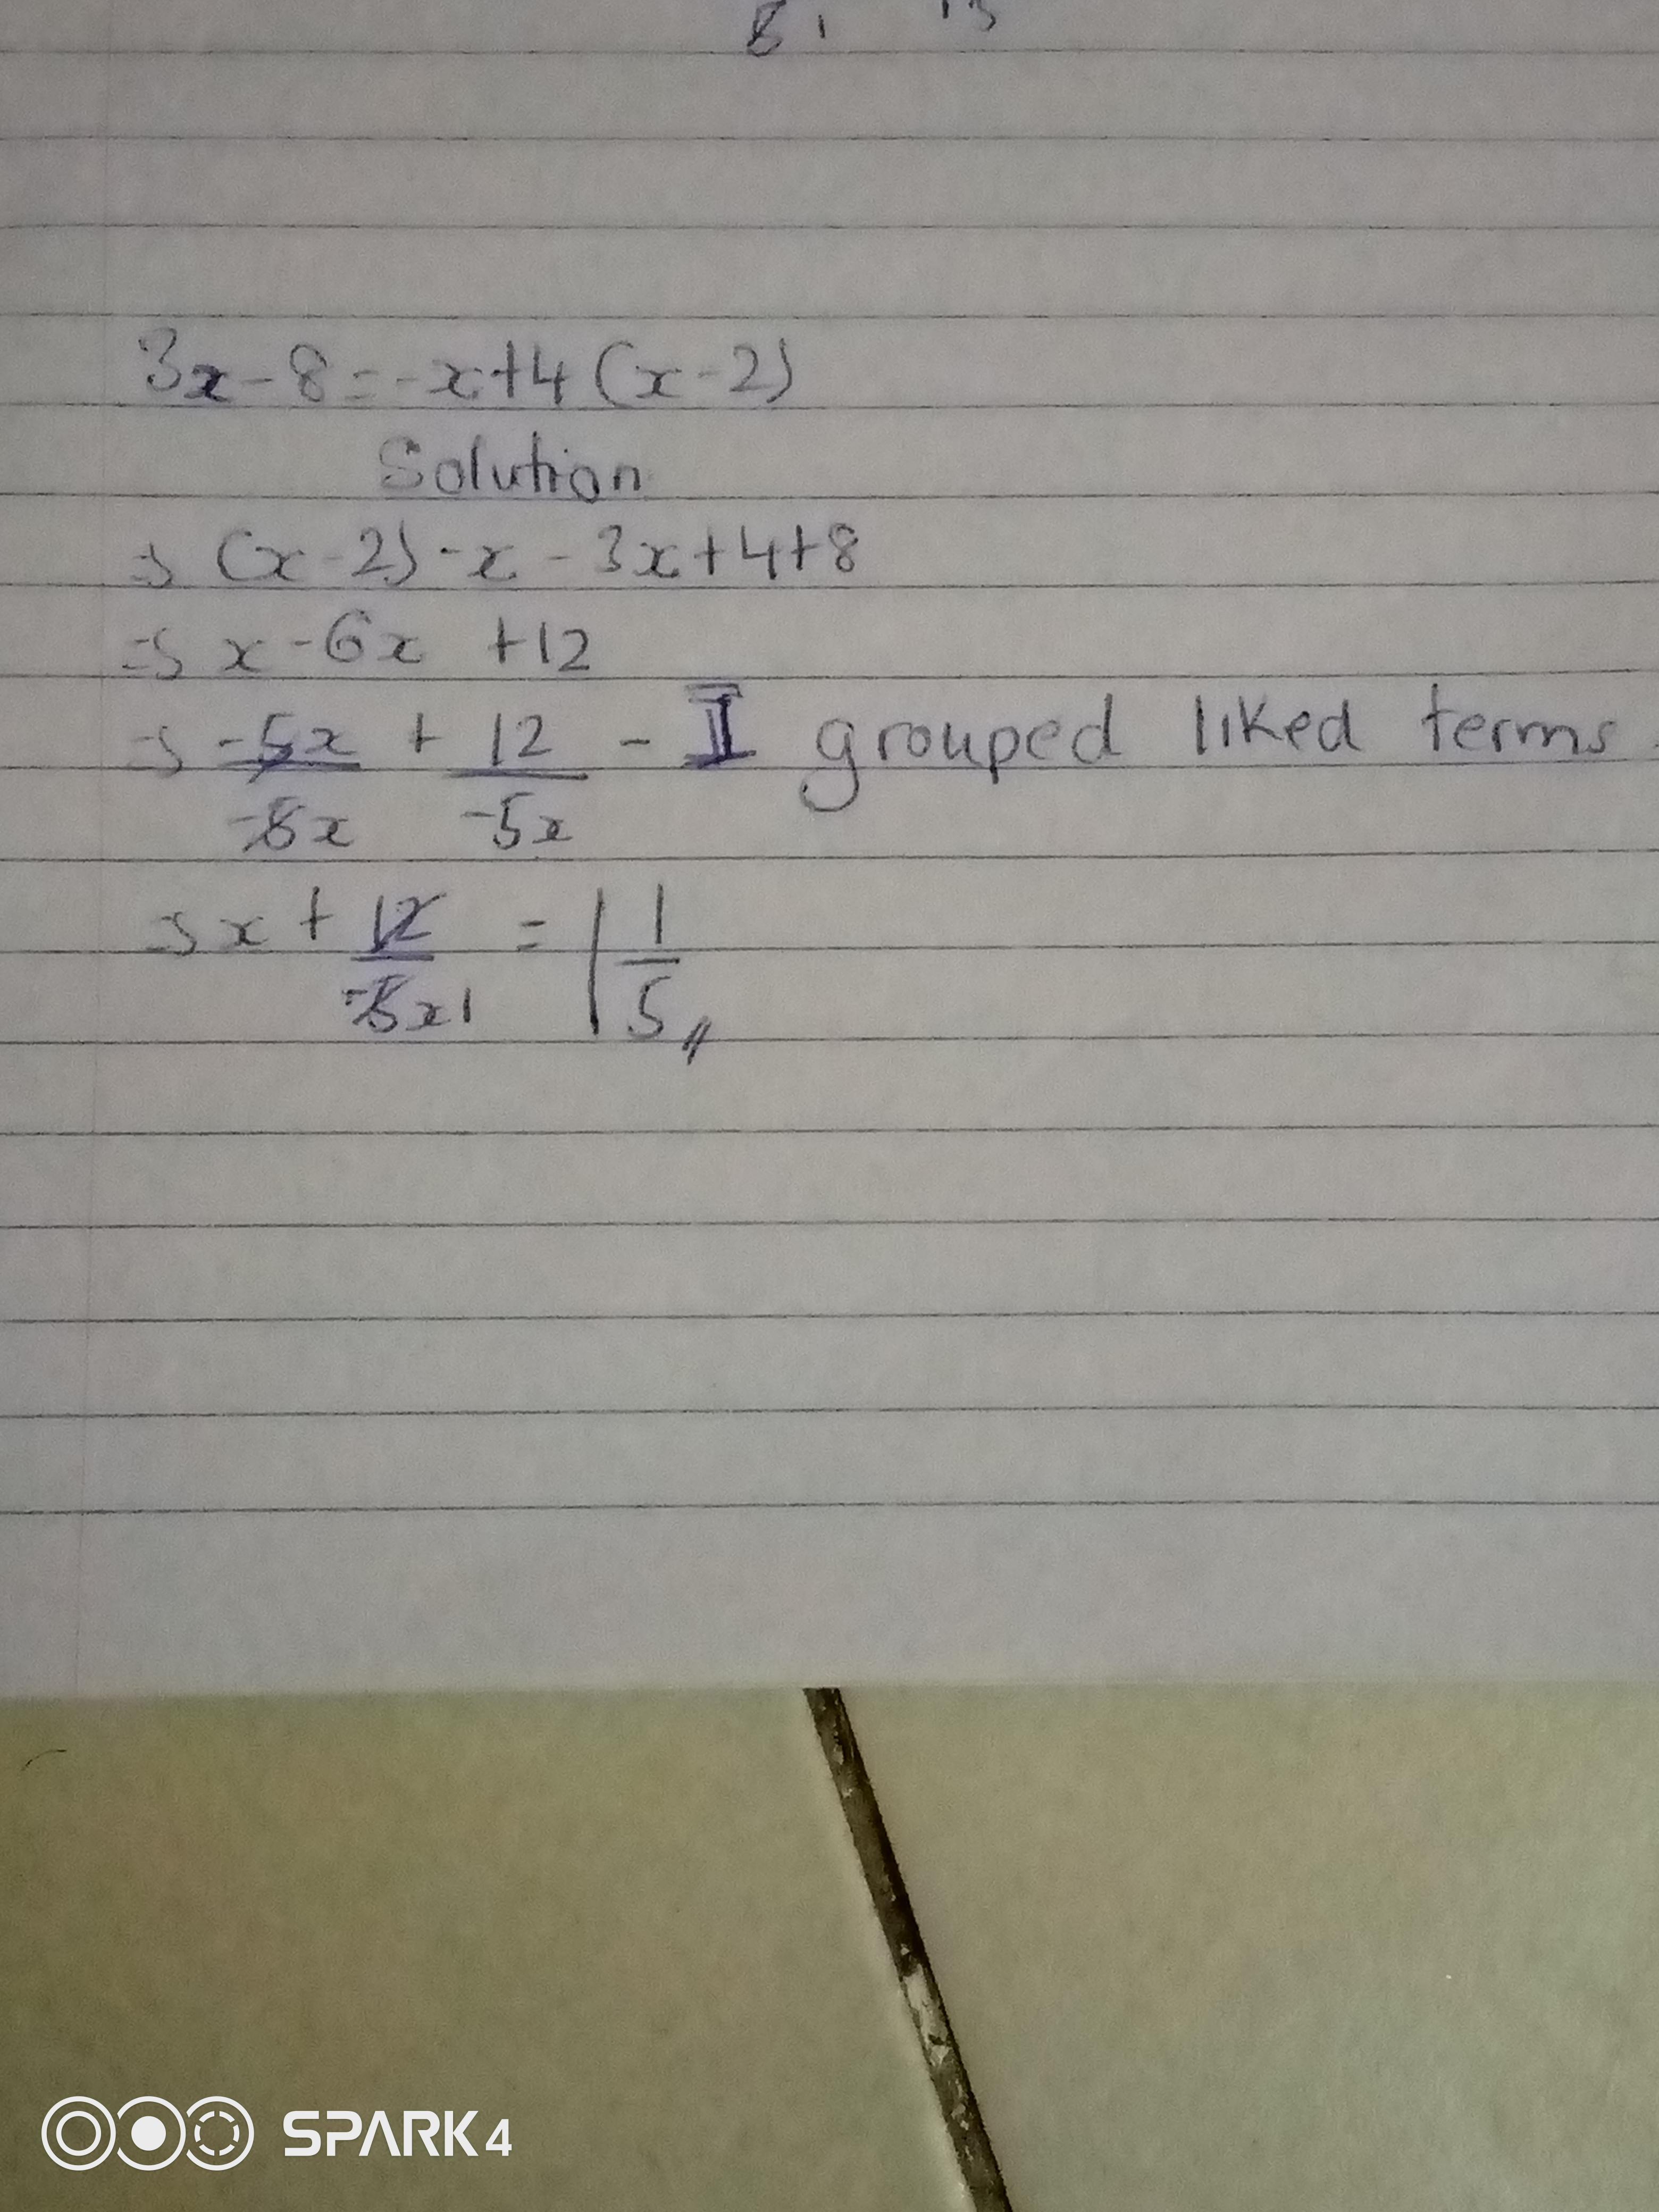 3x - 8 = -x + 4 (x - 2)
Solution
⇒ (x - 2) - x - 3x + 4 + 8
⇒ x - 6x + 12
⇒ -5x/-5x + 12/-5x - I grouped liked terms
⇒ x + 12/-5x1 = 1 1/5
SPARK 4